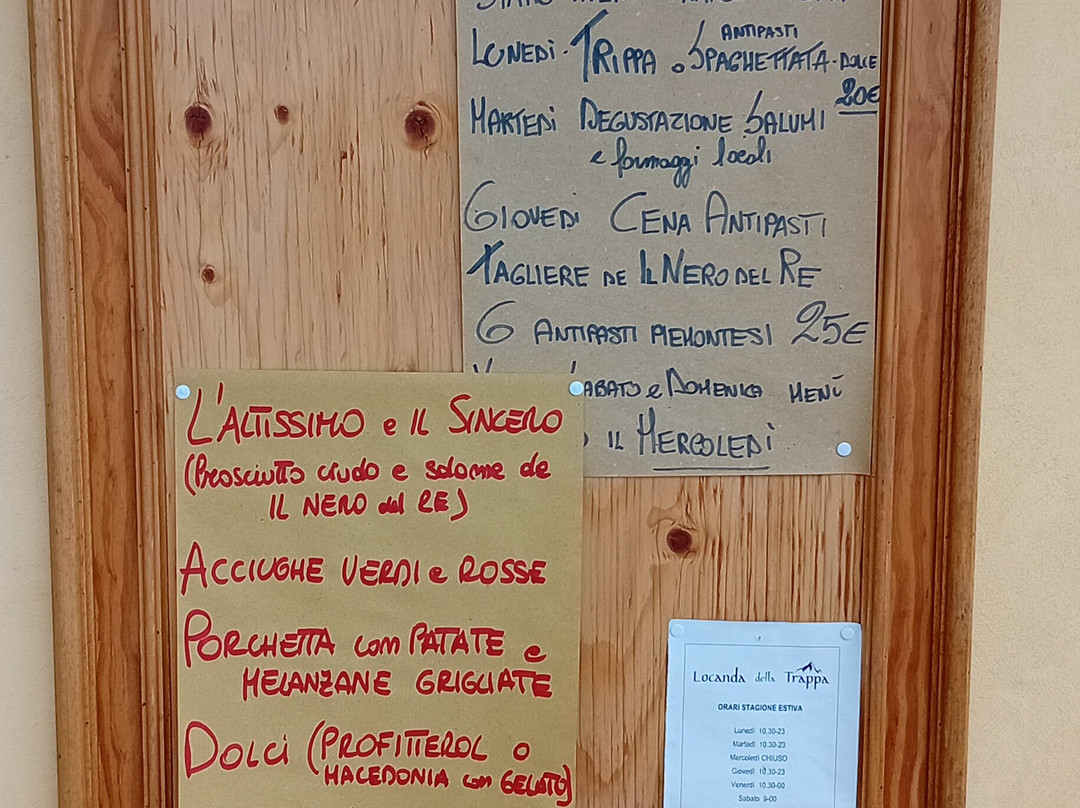 LUNEDÌ · TRIPPA o SPAGHETTATA · DOLCE
ANTIPASTI
20€
MARTEDÌ DEGUSTAZIONE SALUMI
e formaggi locali
GIOVEDÌ CENA ANTIPASTI
TAGLIERE DE IL NERO DEL RE
6 ANTIPASTI PIEMONTESI 25€
SABATO e DOMENICA MENÙ
IL MERCOLEDÌ
L'ALTISSIMO e IL SINCERO
(Prosciutto crudo e salame de
IL NERO del RE)
ACCIUGHE VERDI e ROSSE
PORCHETTA con PATATE e
MELANZANE GRIGLIATE
DOLCI (PROFITTEROL o
MACEDONIA con GELATO)
Locanda della Trappa
ORARI STAGIONE ESTIVA
Lunedì 10.30-23
Martedì 10.30-23
Mercoledì CHIUSO
Giovedì 10.30-23
Venerdì 10.30-00
Sabato 9-00